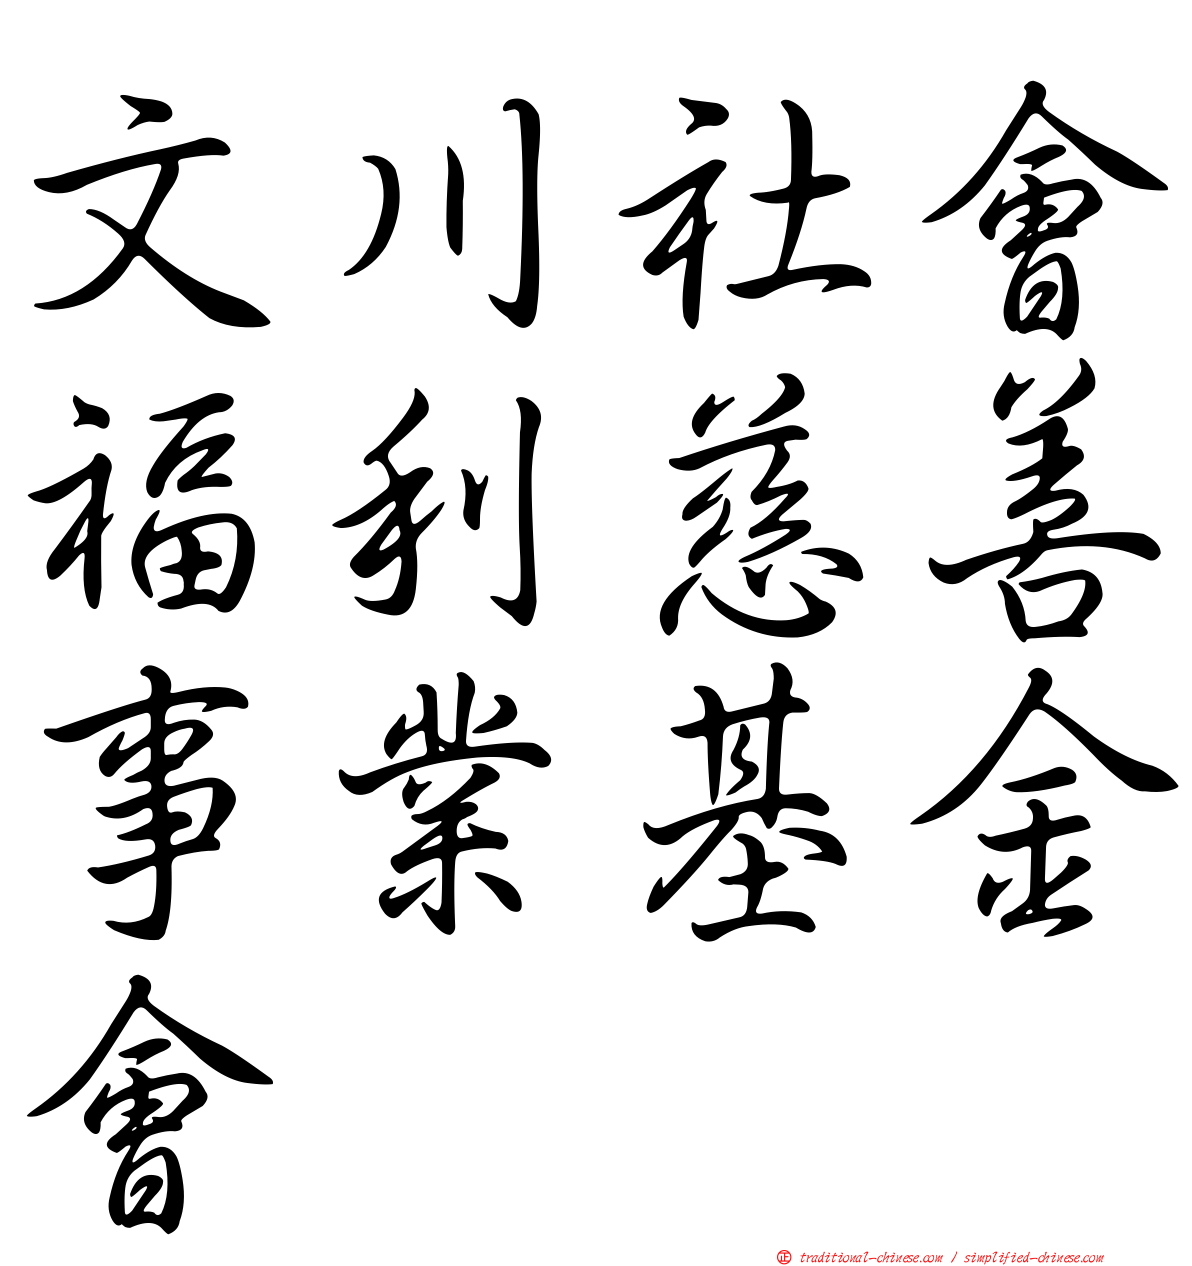 文川社會
福利慈善
事業基金
會
正 traditional-chinese.com / simplified-chinese.com